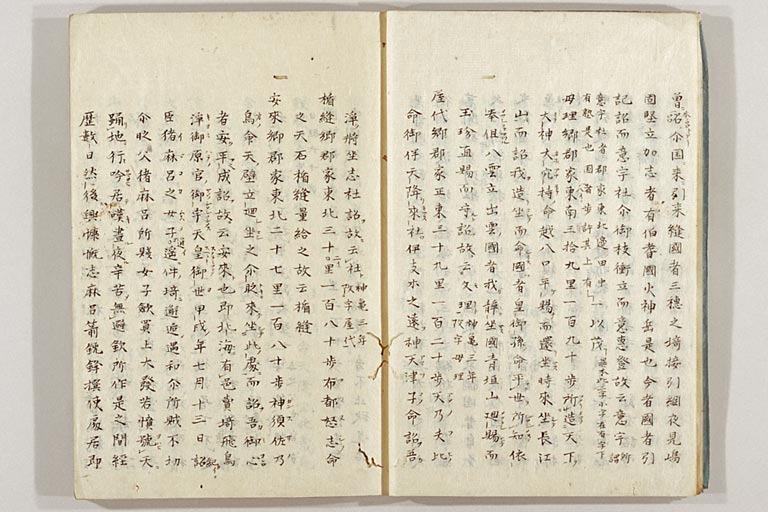 曽魯尒国来引来縫國者三穂之埼接引細夜見嶋
固堅立加志者有伯耆國火神岳是也今者國者引
訖詔而意宇社尒御杖衝立而意惠登詔故云意宇所詔
意宇社者郡家東北邊田中在
有
以茂
母理郷郡家東南三拾九里一百九十歩所造天下
大神大穴持命越八口平賜而還坐時來坐長江
山而詔我造坐而命國者皇御孫命平世所知依
奉但八雲立出雲國者我靜坐國青垣山廻賜而
玉珍直賜而守詔故云文理神亀三年改字母理
屋代郷郡家正東三十九里一百二十歩天乃夫比
命御伴天降來社伊支水之遠神天津子命詔吾
淨將坐志社詔故云社神亀三年改字屋代
楯縫郷郡家東北三十里一百八十歩布都怒志命
之天石楯縫置給之故云楯縫
安來郷郡家東北二十七里一百八十歩神須佐乃
烏命天壁立廻坐之尒時來坐此處而詔吾御心
者安平成詔故云安來也即北海有邑賣埼飛鳥
淨御原宮御宇天皇御世甲戌年七月十三日語
臣猪麻呂之女子遥件埼邂逅遇和尒所賊不切
尒時父猪麻呂所賊女子歛置上大發苦憤號天
踊地行吟居嘆晝夜辛苦無避歛所作是之間經
歴數日然後興慷慨志麻呂箭鋭鋒撰便處居即